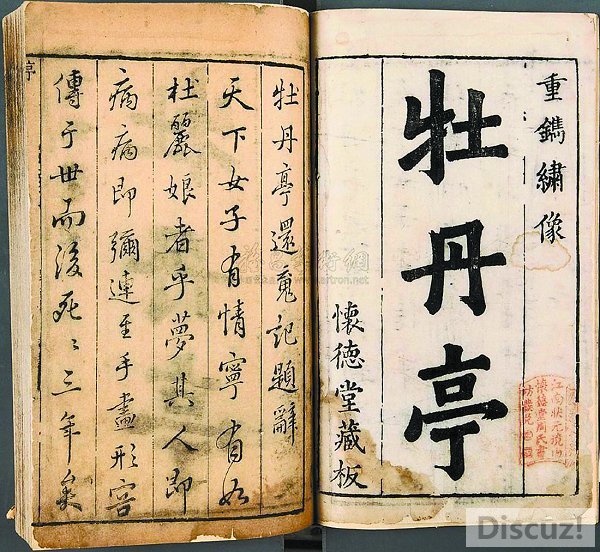 重鐫繡像
牡丹亭
懷德堂藏板
牡丹亭還魂記題辭
天下女子有情寧有如
杜麗娘者乎夢其人即
病病即彌連至手畫形容
傳于世而後死〻三年矣
亭
Discuz!